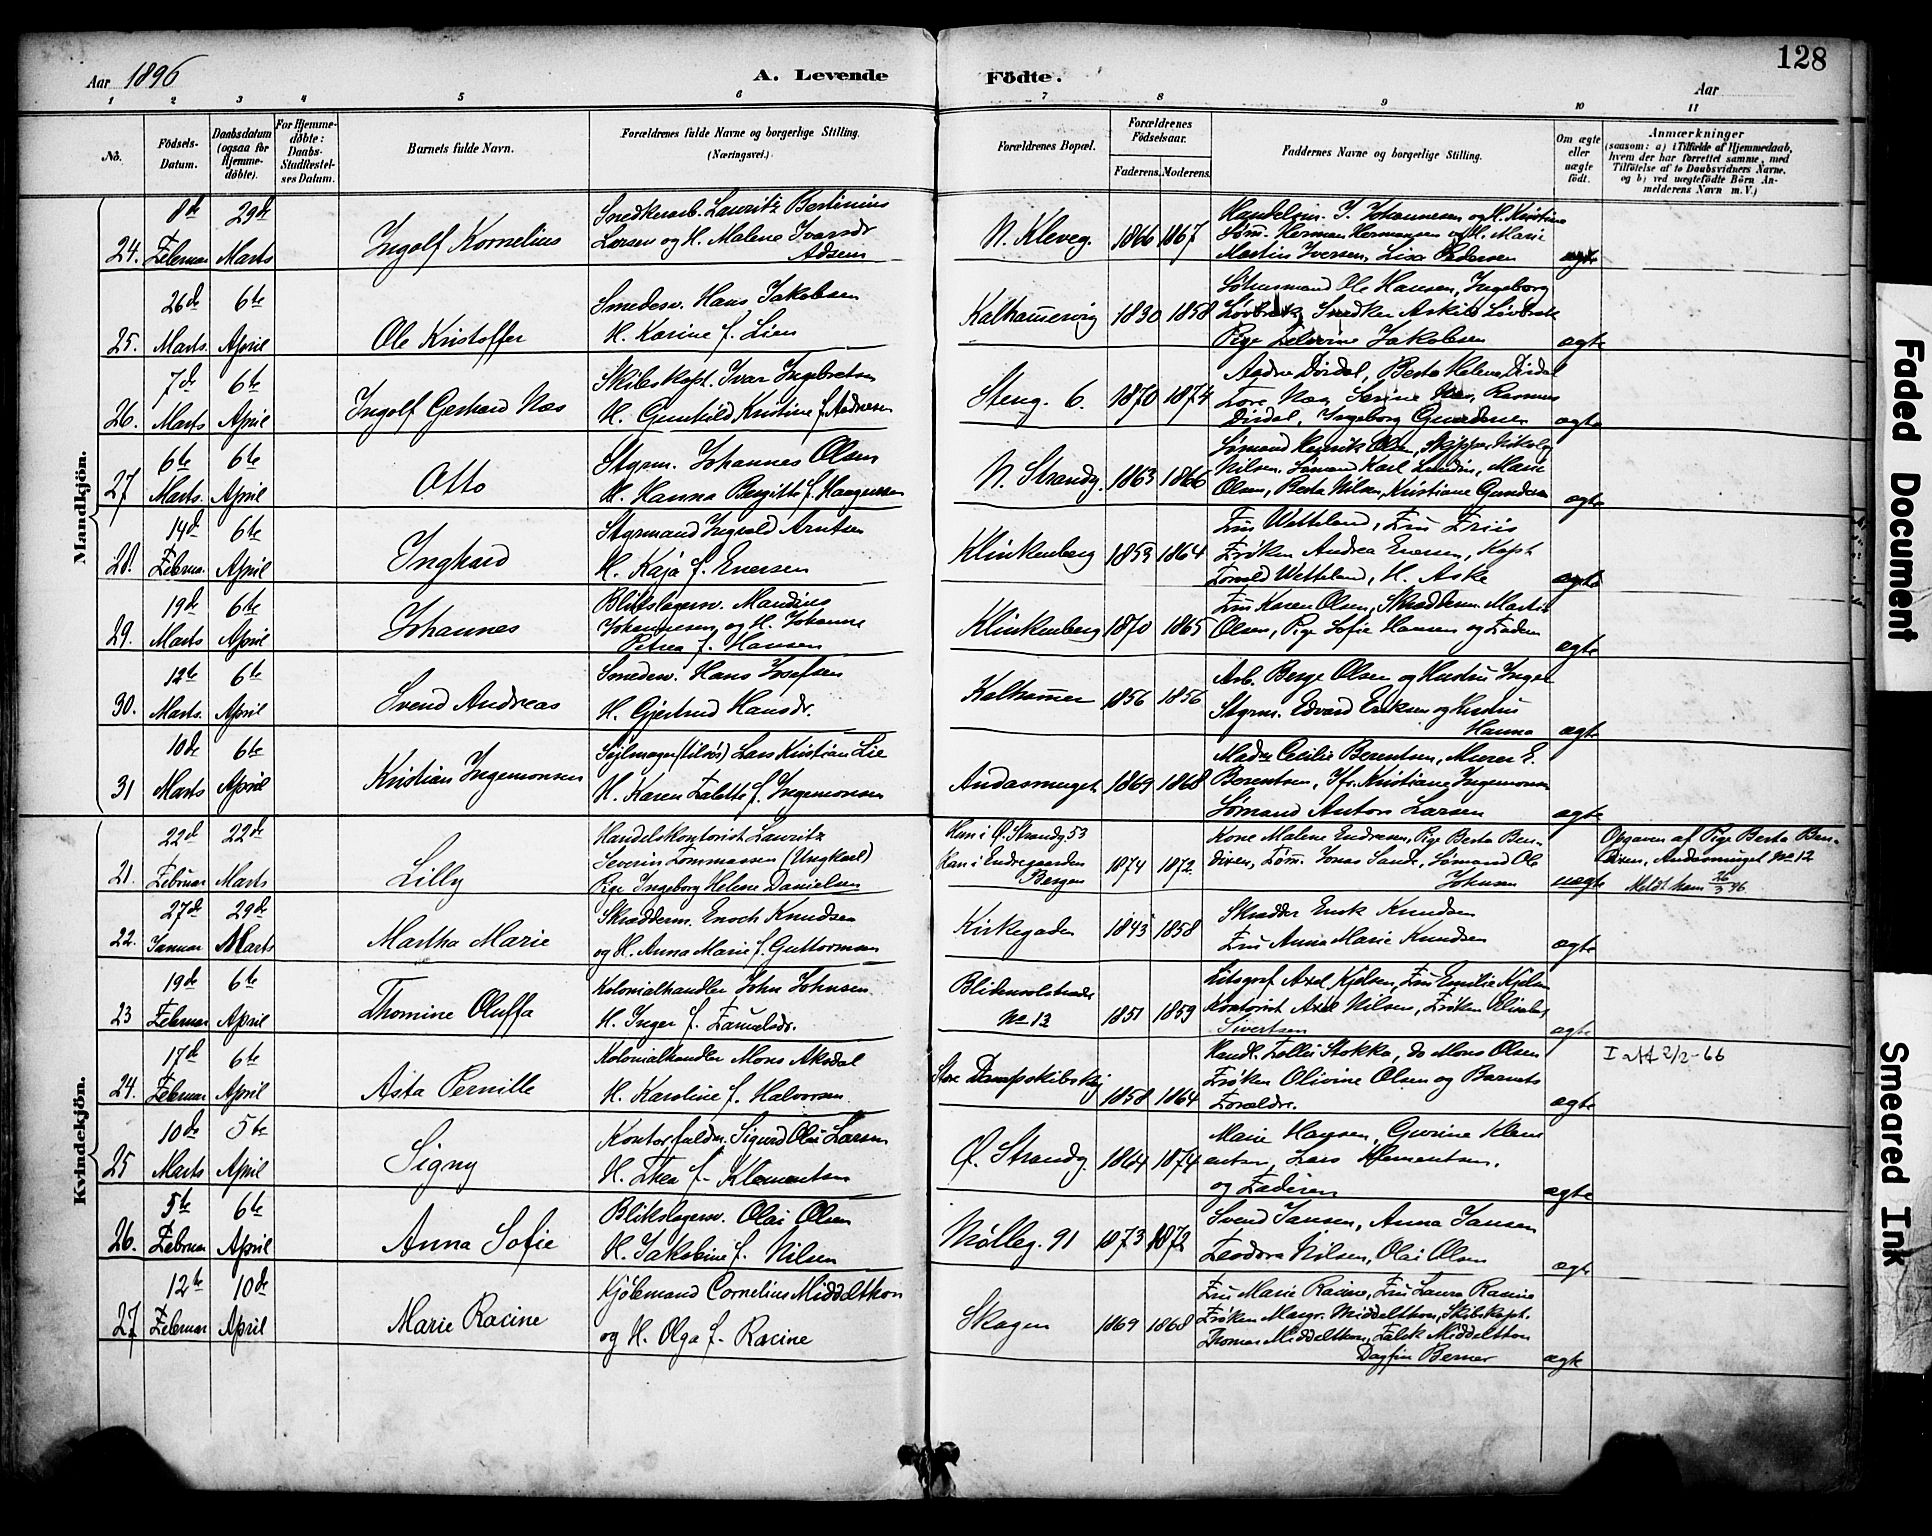 128
Aar 1896
A. Levende Födte.
Aar
1 2 3 4 5 6 7 8 9 10 11
No.
Födsels-
Datum.
Daabsdatum
(ogsaa for
Hjemme-
døbte).
For Hjemme-
døbte:
Daabs-
Stadfæstel-
ses Datum.
Barnets fulde Navn.
Forældrenes fulde Navne og borgerlige Stilling.
(Næringsvei.)
Forældrenes Bopæl.
Forældrenes
Födselsaar.
Faderens. Moderens.
Faddernes Navne og borgerlige Stilling.
Om ægte
eller
uægte
födt.
Anmærkninger
(saasom: a) i Tilfælde af Hjemmedaab,
hvem der har forrettet samme, med
Tilföielse af to Daabsvidners Navne.
og b) ved uægtefödte Börn An-
melderens Navn m. V.)
Mandkjön.
24. 8de Februar 29de Marts
Ingolf Kornelius
Snedkerarb. Lauritz Bertinius
Larsen og H. Malene Ivarsdr
N. Kleveg. 1866 1867
Handelsm. J. Johannesen og H. Kristine
Søm. Herman Hermansen og H. Marie
Martin Iversen, Lisa Pedersen ægte
25. 26de Marts. 6te April
Ole Kristoffer
Smedesv. Hans Jakobsen
H. Karine f. Lien
Kalhammervig 1830 1858
Ole Hansen, Ingeborg
Snedker Askild Løvbrek
Pige Jakobsen ægte
26. 7de Marts 6te April
Ingolf Gerhard Næs
Skibskapt. Ivar Ingebretsen
H. Gunhild Kristine f. Andresen
Steng. 6. 1870 1874
Aadne Dirdal, Berta Helene Dirdal
Tore Næs, Rasmus
Dirdal, Ingeborg ægte
27 6te Marts. 6te April
Otto
Styrm. Johannes Olsen
H. Hanna Bergitte f. Haagensen
N. Strandg. 1863 1866
Sømand Henrik Olsen, Skipper Nikolai
Nilsen. Sømand Karl Lundin, Marie
Olsen, Berta Nilsen, Kristiane Gundersen ægte
28. 14de Februar 6te April
Inghard
Styrmand Ingvald Arntsen
H. Kaja f. Enersen
Klinkenberg 1853 1864
Fru Wetteland, Fru Friis
Frøken Andrea Enersen, Kapt
Tomeld Wetteland, H. Aske ægte
29. 19de Marts 6te April
Johannes
Blikslagersv. Mandius
Johannesen og H. Johanne
Petrea f. Hansen
Klinkenberg 1870 1865
Fru Karen Olsen, Skrædderm. Martin
Olsen, Pige Sofie Hansen og Faderen ægte
30. 12te Marts. 6te April
Svend Andreas
Smedesv. Hans Josefsen
H. Gjertrud Hansdr.
Kalhammer 1856 1856
Arb. Berge Olsen og Hustru Inger
Styrm. Edvard Eriksen og Hustru
Hanna ægte
31 10de Marts 6te April
Kristian Ingemonsen
Sejlmager (tilsøs) Lars Kristian Lie
H. Karen Falette f. Ingemonsen
Andasmuget 1869 1868
Madm Cecilie Berentsen, Murer E.
Berentsen, Jfr. Kristiane Ingemonsen
Sømand Anton Larsen ægte
Kvindekjön.
21. 22de Februar 22de Marts
Lilly
Handelskontorist Lauritz
Severin Tommassen (Ungkarl)
Pige Ingeborg Helene Danielsen
Hun i Ø. Strandg 53
Han i Endregaarden
Bergen 1874 1872
Kone Malene Endresen, Pige Berta Ben-
dixen, Tøm. Jonas Sande, Sømand Ole
Johnsen uægte
Opgaven af Pige Berta Ben-
dixen, Andasmuget No 12
Meldt ham 26/3 96
22. 27de Januar 29de Marts
Martha Marie
Skrædderm. Enoch Knudsen
og H. Anna Marie f. Guttormsen
Kirkegaden 1843 1858
Skrædder Enok Knudsen
Fru Anna Marie Knudsen ægte
23 19de Februar 6te April
Thomine Oluffa
Kolonialhandler John Johnsen
H. Inger f. Samuelsdr.
Blidensolstræde
No 13 1851 1859
Litograf Axel Kjelsen, Fru Emilie Kjelsen
Kontorist Axel Nilsen, Frøken Elisabet
Sivertsen ægte
24. 17de Februar 6te April
Asta Pernille
Kolonialhandler Mons Aksdal
H. Karoline f. Halvorsen.
Store Dampskibskaj 1858 1864
Handl. Tollei Stokka, do Mons Olsen
Frøken Olivine Olsen og Barnets
Forældre. ægte
2/2-66
25 10de Marts 5te April
Signy
Kontorfuldm. Sigurd Olai Larsen
H. Thea f. Klementsen
Ø. Strandg. 1864 1874
Marie Hansen, Gurine Klem
entsen, Lars Klementsen,
og Faderen ægte
26. 5te Februar 6te April
Anna Sofie
Blikslagersv. Olai Olsen
H. Jakobine f. Nilsen
Mølleg. 91 1873 1872
Svend Jansen, Anna Jansen
Teodora Nilsen, Olai Olsen ægte
27 12te Februar 10de April
Marie Racine
Kjøbmand Cornelius Middelthon
og H. Olga f. Racine
Skagen 1869 1868
Fru Marie Racine, Fru Laura Racine
Frøken Margr. Middelthon, Skibskapt.
Thomas Middelthon, Falck Middelthon
Dagfin Berner ægte
Faded Document
Smeared Ink